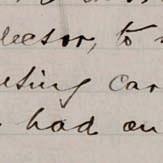 lector, to
eting car
had on